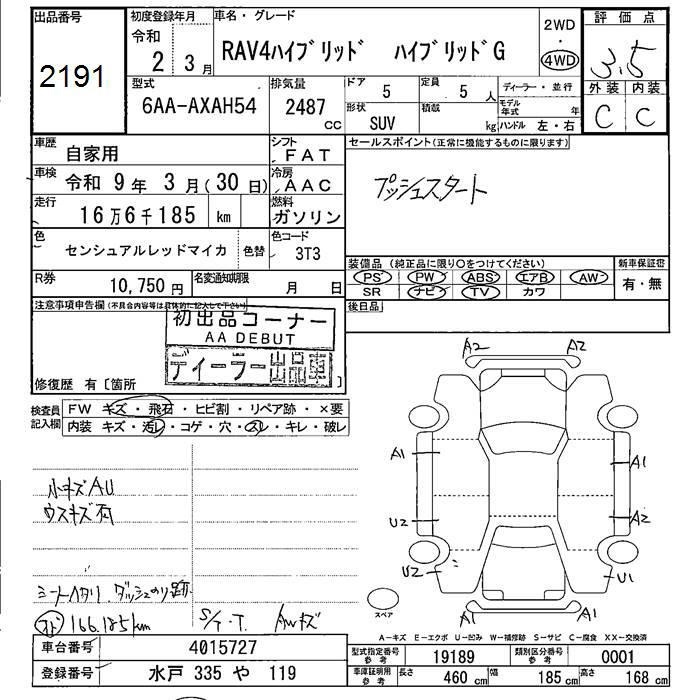 出品番号
2191
初度登録年月
令和
2 3月
車名・グレード
RAV4ハイブリッド ハイブリッドG
2WD
・
4WD
評価点
3.5
外装 内装
C C
型式
6AA-AXAH54
排気量
2487
cc
ドア
5
定員
5 人
形状
SUV
積載
kg
ディーラー・並行
モデル年式
年
ハンドル 左・右
車歴
自家用
シフト
FAT
車検
令和 9年 3月(30日)
冷房
AAC
走行
16万6千185 km
燃料
ガソリン
色
センシュアルレッドマイカ
色替
色コード
3T3
R券
10,750円
名変通知期限
月 日
セールスポイント(正常に機能するものに限ります)
プッシュスタート
装備品 (純正品に限り○をつけてください)
新車保証書
PS PW ABS エアB AW
SR ナビ TV カワ
有・無
後日品
注意事項申告欄(不具合内容等は具体的に記入して下さい)
初出品コーナー
AA DEBUT
ディーラー出品車
修復歴 有〔箇所 〕
検査員
記入欄
FW キズ・飛石・ヒビ割・リペア跡・×要
内装 キズ・汚レ・コゲ・穴・スレ・キレ・破レ
小キズAU
ウスキズ有
シートヘタリ ダッシュのり跡
166.185km
S/T・T. AWキズ
A2 A2
A1 A1
U2 A2
U2 U1
A1 A1
スペア
A−キズ E−エクボ U−凹み W−補修跡 S−サビ C−腐食 XX−交換済
車台番号
4015727
登録番号
水戸 335 や 119
型式指定番号
参考
19189
類別区分番号
参考
0001
車庫証明用
参考
長さ
460 cm
幅
185 cm
高さ
168 cm